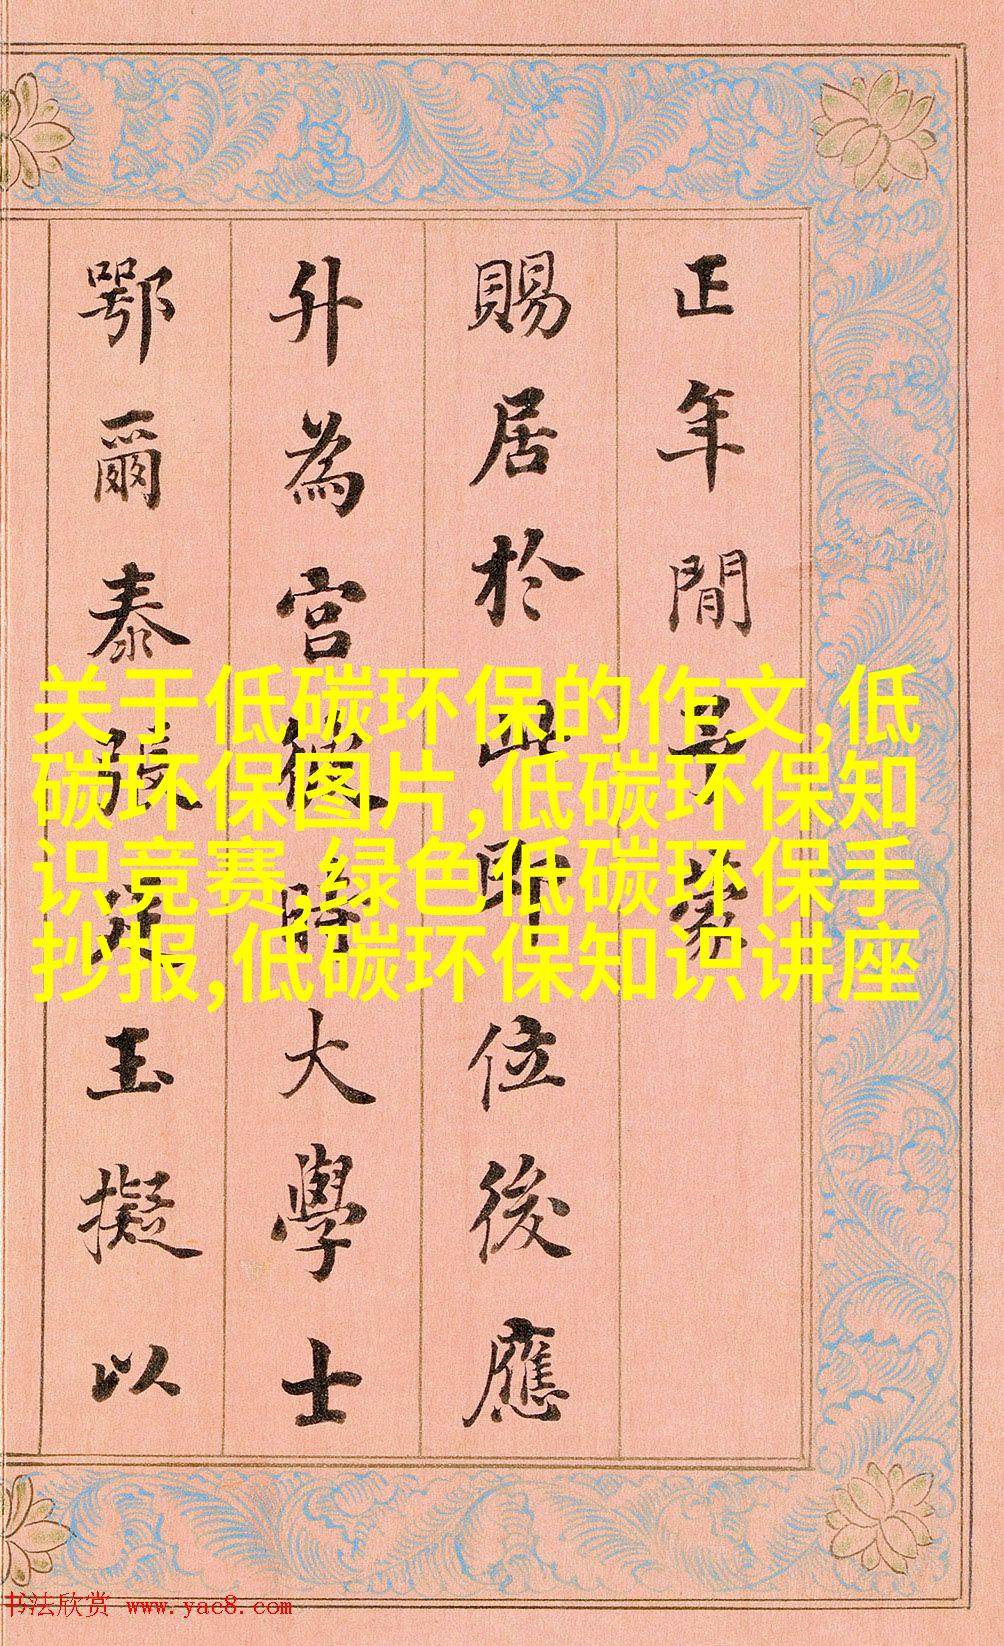 正年間蒙
賜居於此即位後應
升為宮彼時大學士
鄂爾泰張廷玉擬以
关于低碳环保的作文,低
碳环保图片,低碳环保知
识竞赛,绿色低碳环保手
抄报,低碳环保知识讲座
书法欣赏 www.yac8.com